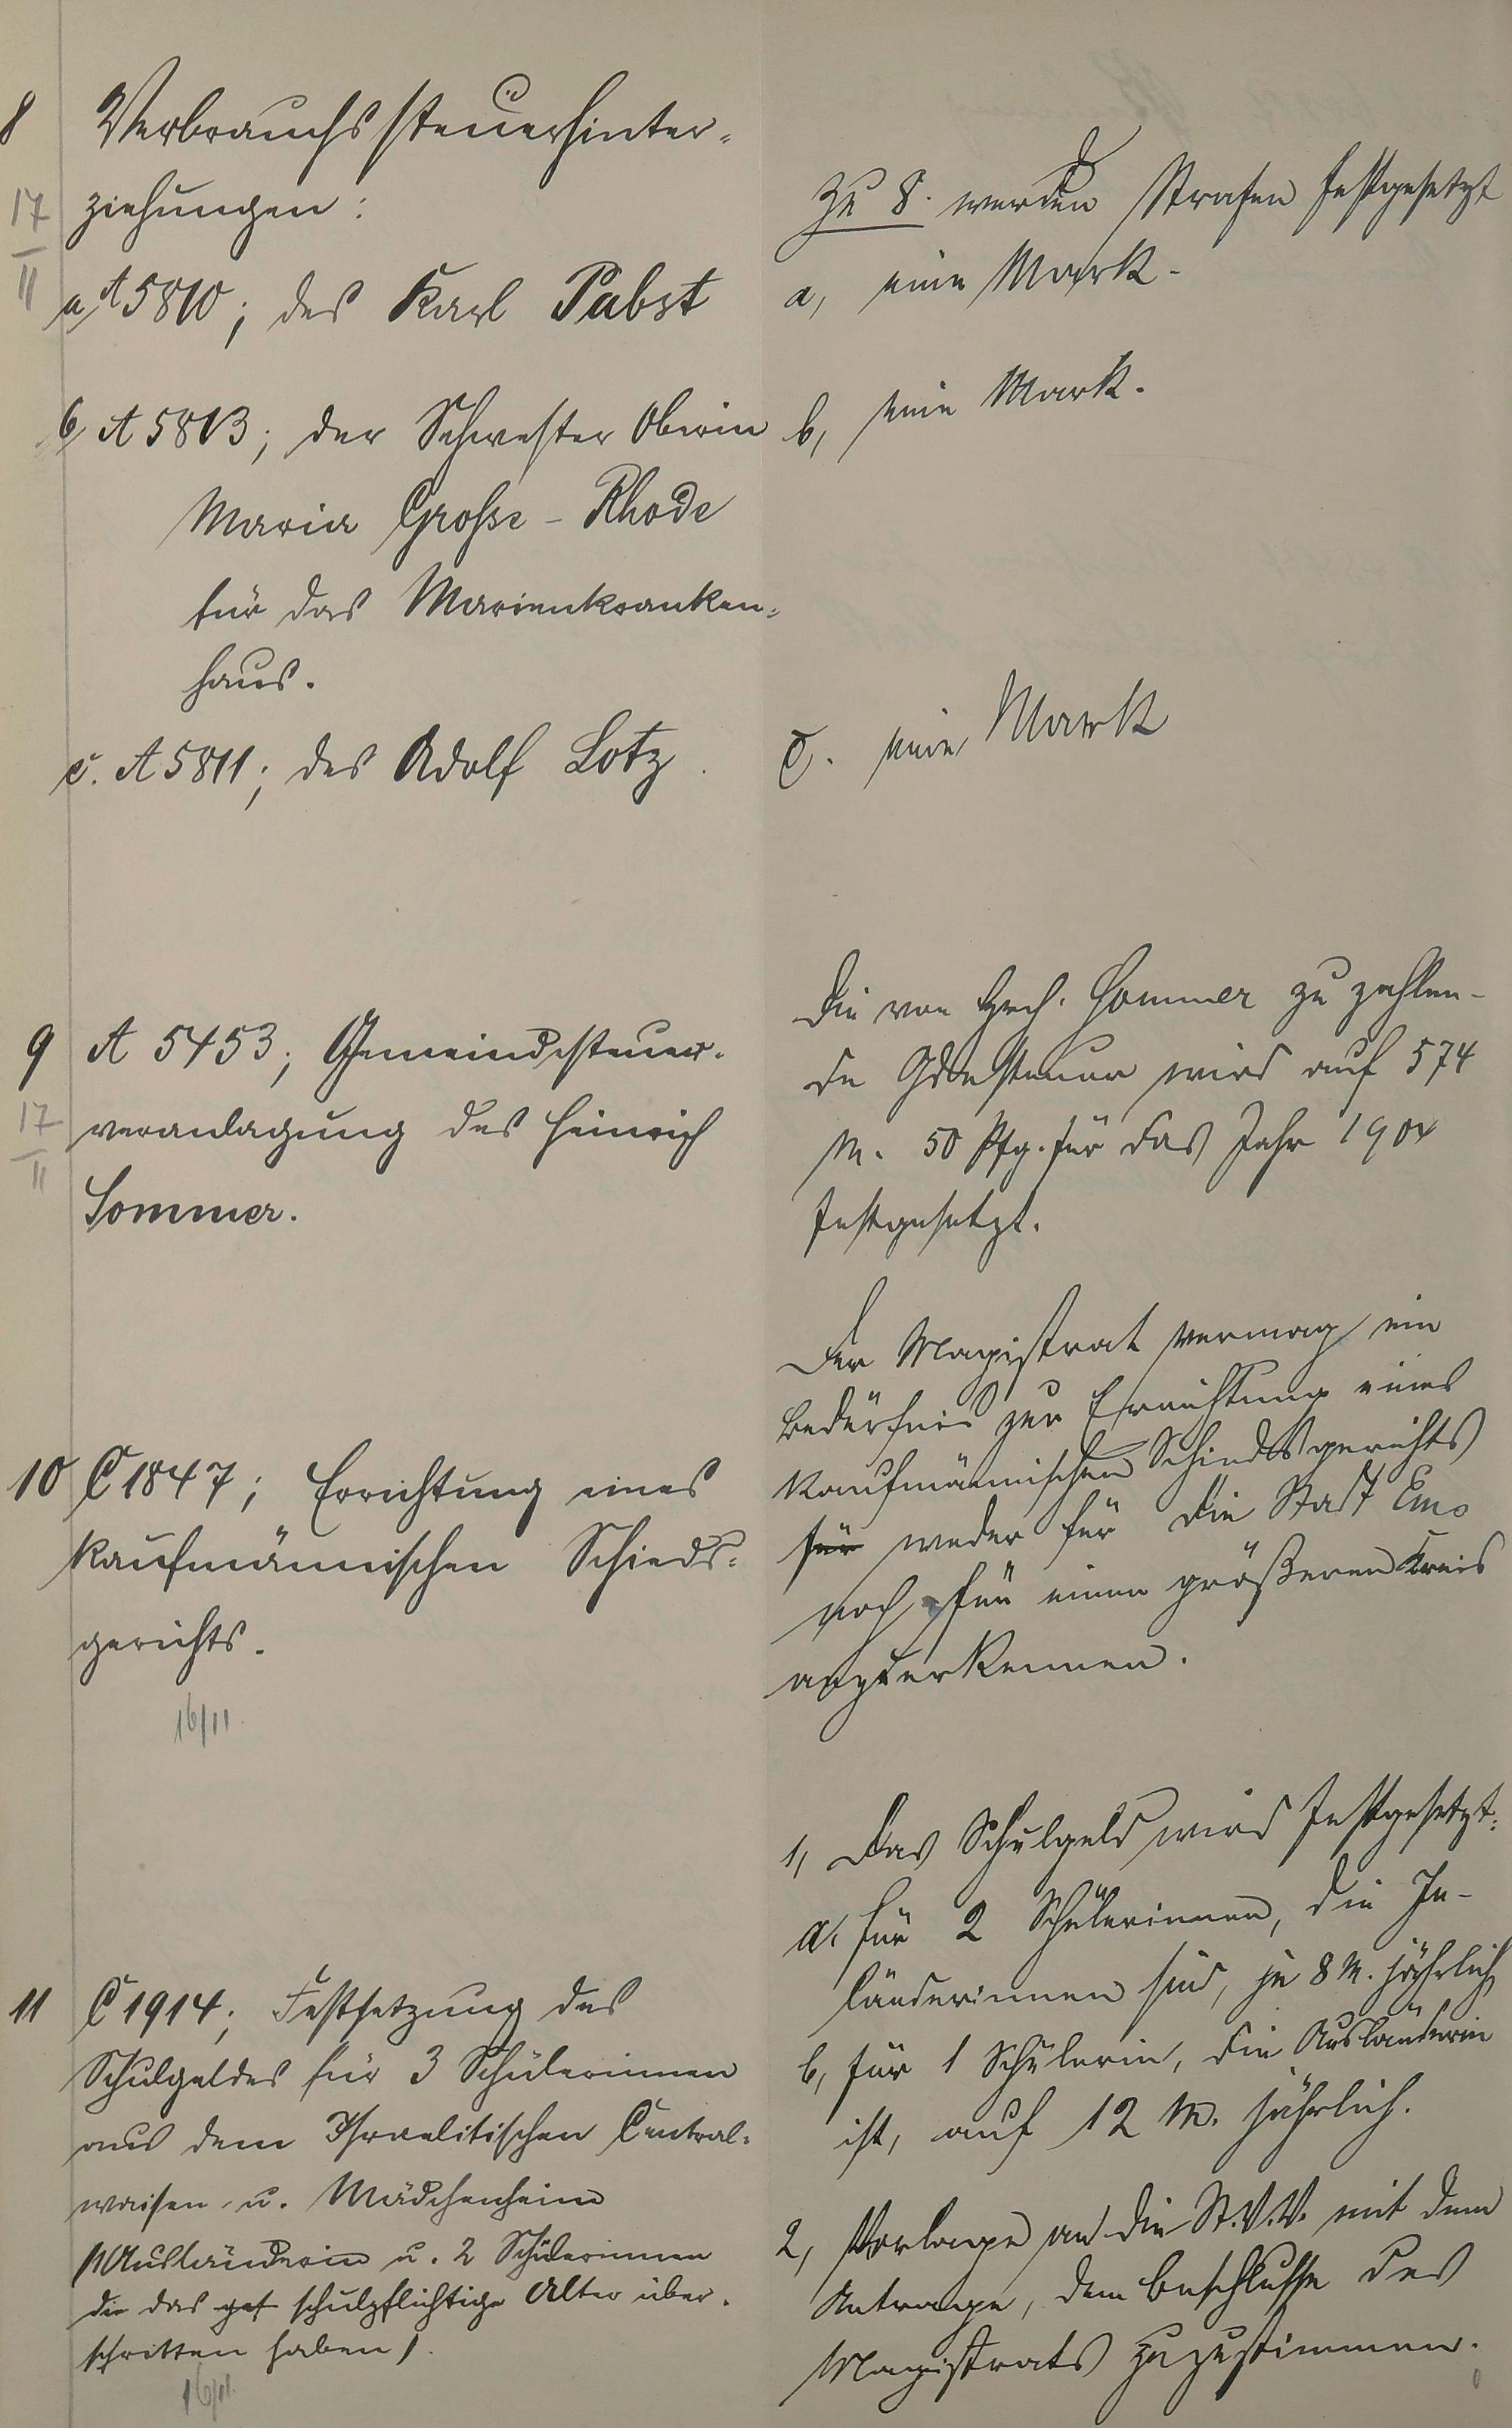 8 Verbrauchssteuerhinter=
17/II ziehungen:
a, A 5810; des Karl Pabst
b, A 5813; der Schwester Oberin
Maria Grosse-Rhode
für das Marienkranken=
haus.
c. A 5811; des Adolf Lotz.
Zu 8. werden Strafen festgesetzt
a, eine Mark.
b, eine Mark.
c. eine Mark
9 A 5453; Gemeindesteuer-
17/II veranlagung des Heinrich
Sommer.
Die von Hrch. Sommer zu zahlen-
de Gdesteuer wird auf 574
M. 50 Pfg. für das Jahr 1904
festgesetzt.
10 C 1847; Errichtung eines
kaufmännischen Schieds=
gerichts.
16/11.
Der Magistrat vermag ein
Bedürfnis zur Errichtung eines
kaufmännischen Schiedsgerichts
für weder für die Stadt Ems
noch für einen größeren Kreis
anzuerkennen.
11 C 1914; Festsetzung des
Schulgeldes für 3 Schülerinnen
aus dem Israelitischen Central=
waisen- u. Mädchenheim
(1 Ausländerin u. 2 Schülerinnen
die das ges schulpflichtige Alter über-
schritten haben).
16/11.
1, Das Schulgeld wird festgesetzt:
a, für 2 Schülerinnen, die In-
länderinnen sind, je 8 M. jährlich,
b, für 1 Schülerin, die Ausländerin
ist, auf 12 M. jährlich.
2, Vorlage an die St.V.V. mit dem
Antrage, dem Beschlusse des
Magistrats zuzustimmen.